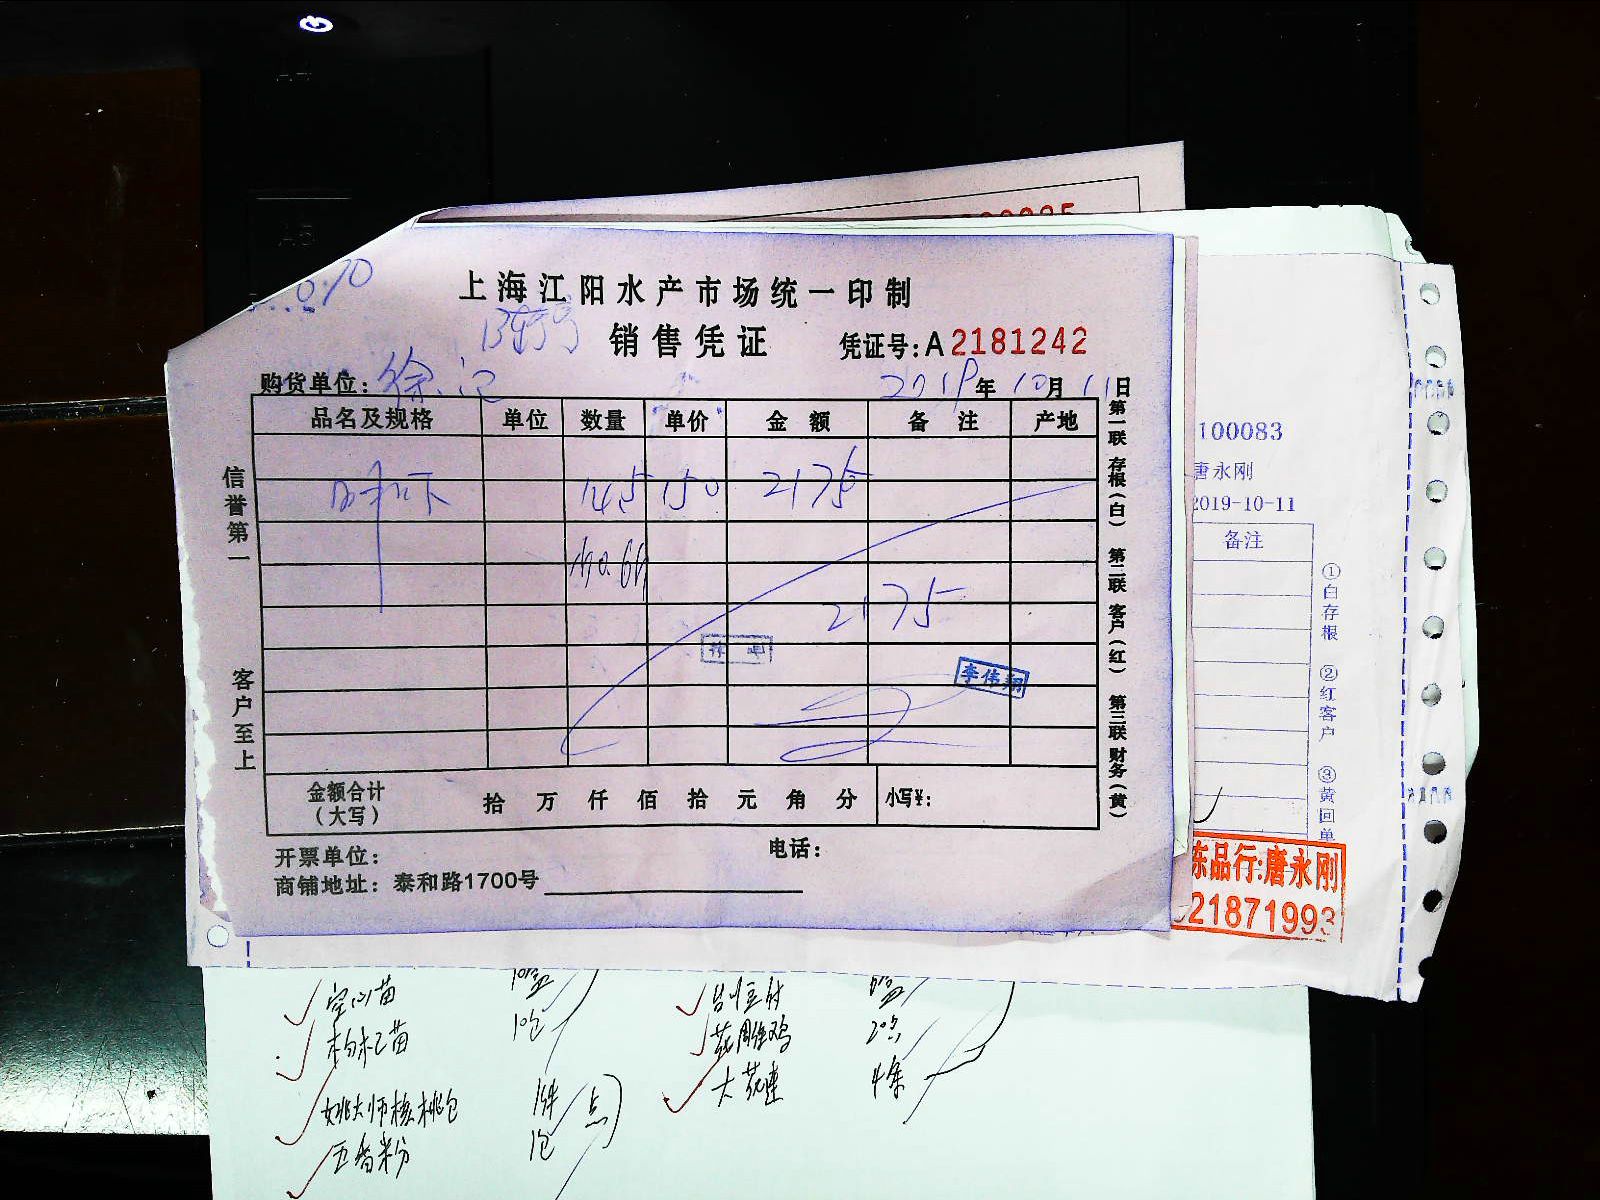 上海江阳水产市场统一印制
销售凭证 凭证号:A 2181242
购货单位: 徐记 2019年10月11日
品名及规格 单位 数量 单价 金额 备注 产地
14.5 150 2175
2175
李伟翔
金额合计（大写） 拾 万 仟 佰 拾 元 角 分 小写¥:
开票单位: 电话:
商铺地址: 泰和路1700号
信誉第一 客户至上
第一联 存根（白） 第二联 客户（红） 第三联 财务（黄）
100083
唐永刚
2019-10-11
备注
①白存根 ②红客户 ③黄回单
冻品行:唐永刚
21871993
空心苗 10盒
枸杞苗 1包
姚大师核桃包 1件
五香粉 1包
花雕鸡
大花莲 4条